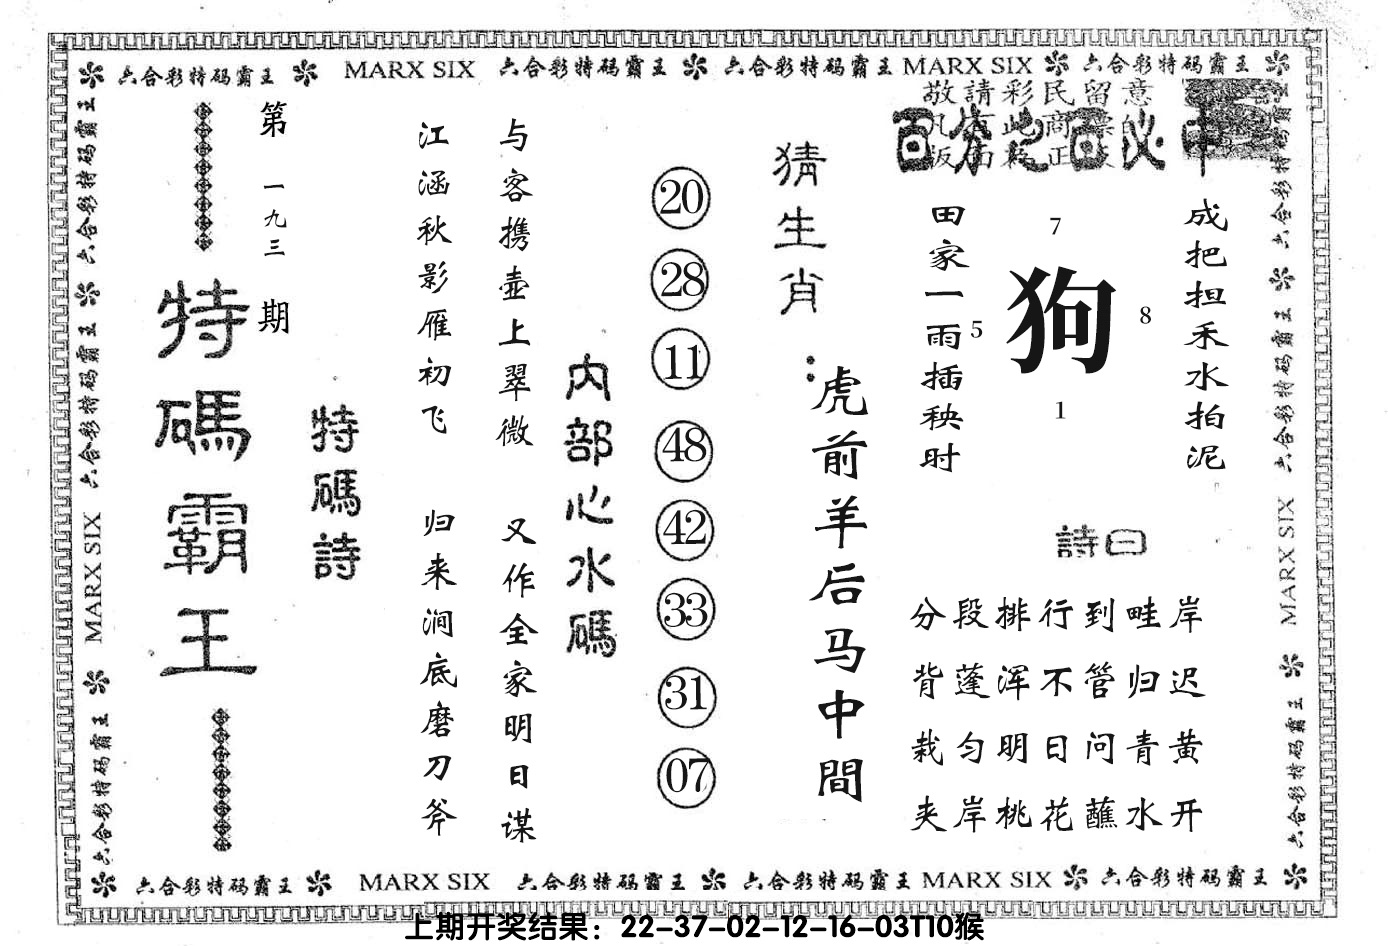 六合彩特码霸王 MARX SIX 六合彩特码霸王 六合彩特码霸王 MARX SIX 六合彩特码霸王
敬請彩民留意
百分之百必中
成把担禾水拍泥
7
狗
8
5
1
田家一雨插秧时
詩曰
分段排行到畦岸
背蓬浑不管归迟
栽匀明日问青黄
夹岸桃花蘸水开
猜生肖:
虎前羊后马中間
20
28
11
48
42
33
31
07
内部心水碼
与客携壶上翠微 又作全家明日谋
江涵秋影雁初飞 归来涧底磨刀斧
特碼詩
第一九三期
特碼霸王
六合彩特码霸王 六合彩特码霸王 MARX SIX 六合彩特码霸王
六合彩特码霸王 六合彩特码霸王 MARX SIX 六合彩特码霸王
六合彩特码霸王 MARX SIX 六合彩特码霸王 六合彩特码霸王 MARX SIX 六合彩特码霸王
上期开奖结果：22-37-02-12-16-03T10猴